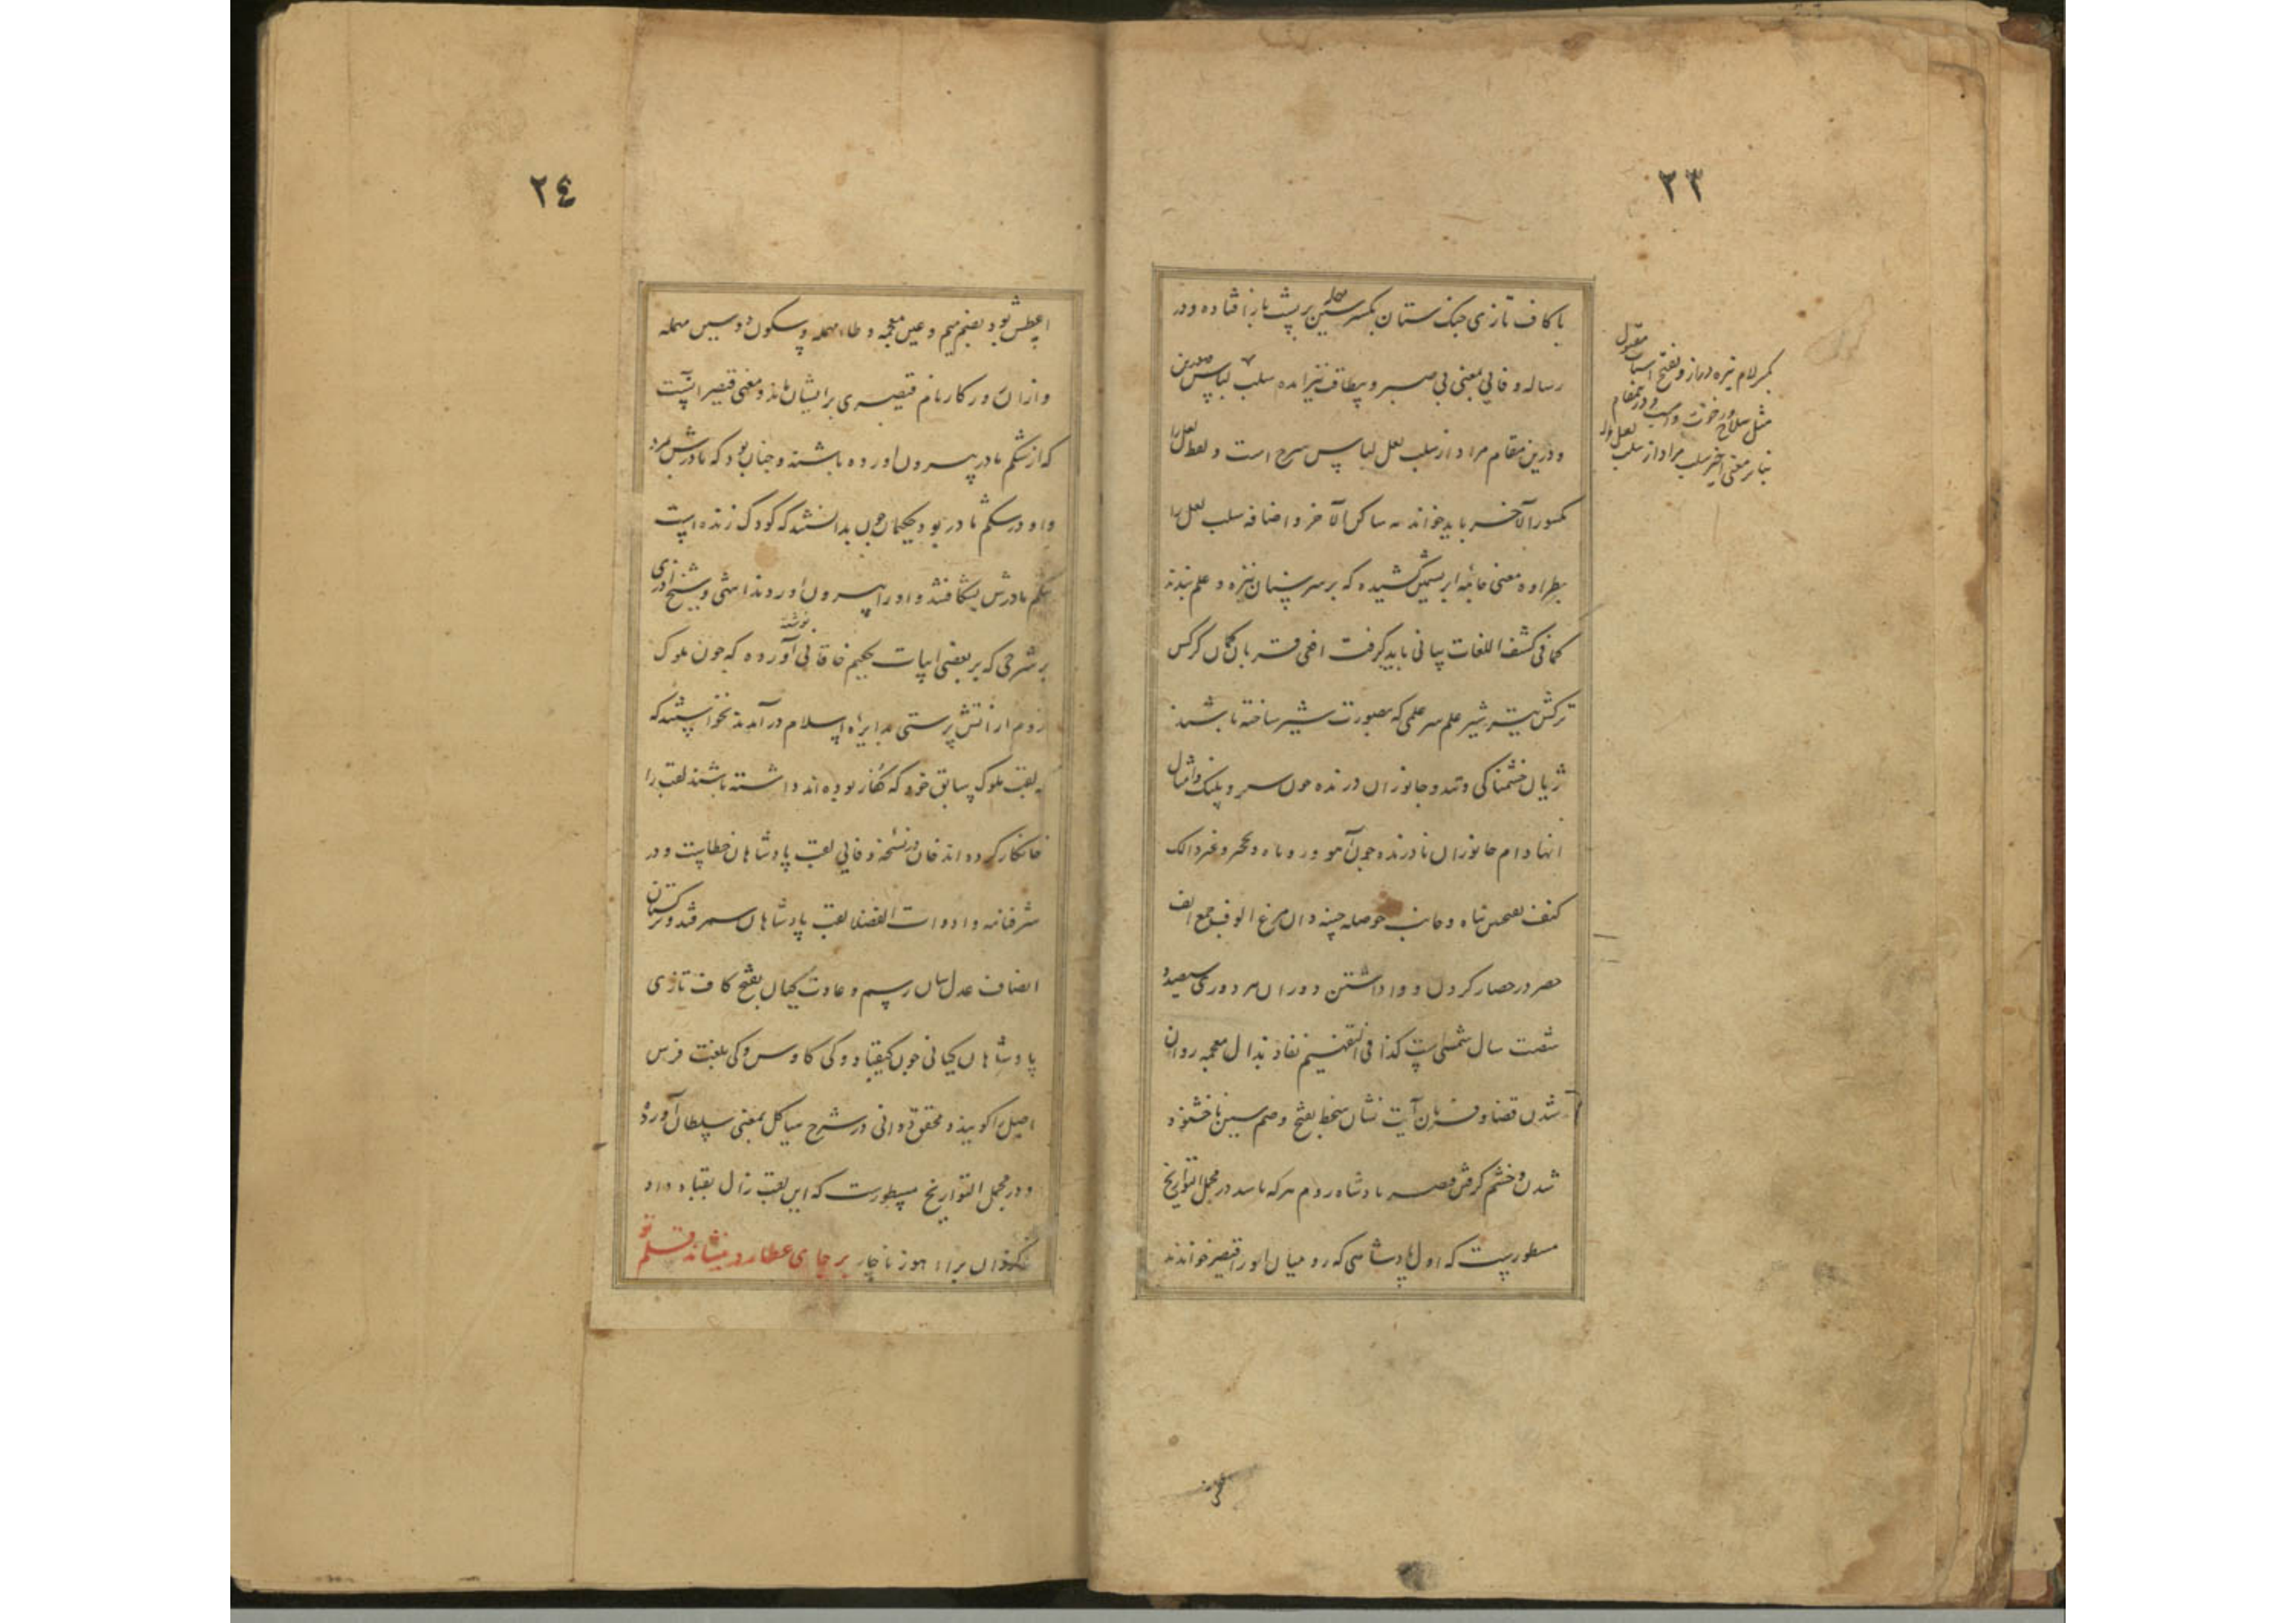 ۲۳
با کاف تازی جنگ ستان بکسر سین مهمله بر پشت باز افتاده و در
رساله وفایی بمعنی بی صبر و بیطاقت نیز آمده سلب لباس
و درین مقام مراد از سلب لعل لباس سرخ است و لفظ لعل را
مکسور الآخر باید خواند نه ساکن الآخر و اضافه سلب لعل را
بطراوه معنی جامه ابریشمین کشیده که بر سر سنان نیزه و علم بندند
کما فی کشف اللغات بیانی باید گرفت افعی قربان کمان کرکس
ترکش تیر شیر علم سر علمی که بصورت شیر ساخته باشند
ژیان خشمناکی و تند و جانوران درنده چون شیر و پلنک و امثال
انها دام جانوران نادرنده چون آهو و روباه و
کنف بفتحین پناه و جانب حوصله چینه دان مرغ الوف جمع الف
حصر در حصار کردن و وا داشتن دوران هر دوری سیصد و
شصت سال شمسی است کذا فی التفهیم نفاذ بذال معجمه روان
شدن قضا و فرمان آیت نشان سخط بفتح و ضم سین ناخشنود
شدن و خشم گرفتن قیصر پادشاه روم هر که باشد در مجمل التواریخ
مسطور است که اول پادشاهی که رومیان او را قیصر خواندند
بکسر لام نیزه دراز و بفتح
مثل سلاح و رخوت و اسب و درین مقام
بنابر معنی اخیر سلب مراد از سلب لعل
۲٤
اغطس بود بضم میم و غین معجمه و طاء مهمله و سکون دو سین مهمله
و ازان روزگار نام قیصری بر ایشان ماند و معنی قیصر آنست
که از شکم مادر بیرون آورده باشند و چنان بود که مادرش مرد
و او در شکم مادر بود حکیمان چون بدانستند که کودک زنده است
شکم مادرش بشکافتند و او را بیرون آوردند انتهی و شیخ آذری
بر شرحی که بر بعضی ابیات حکیم خاقانی نوشته آورده که چون ملوک
روم از آتش پرستی بدایره اسلام در آمدند نخواستند که
لقب ملوک سابق خود که کفار بوده اند داشته باشند لقب را
خانکار کرده اند خان در نسخه وفایی لقب پادشاهان خطاست و در
شرفنامه و ادوات الفضلا لقب پادشاهان سمرقند و ترکستان
انصاف عدل سان رسم و عادت کیان بفتح کاف تازی
پادشاهان کیانی چون کیقباد و کی کاوس و کی بلغت فرس
اصیل را گویند و محقق دوانی در شرح هیاکل بمعنی سلطان آورده
و در مجمل التواریخ مسطورست که این لقب زال بقباد داد
برجای عطارد بنشاند قلم تو